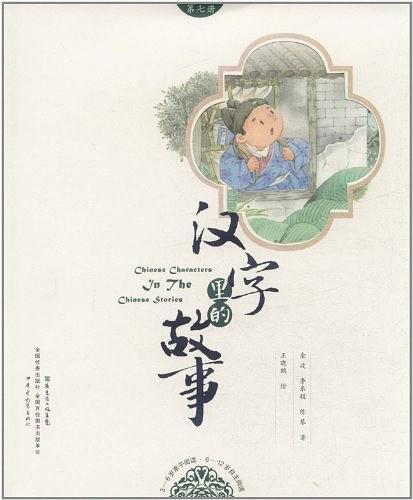 第七册
汉字
里的
故事
Chinese Characters
In The
Chinese Stories
陈 琴 著
王晓鹏 绘
全国优秀出版社 全国百佳图书出版单位
3—6岁亲子阅读·6—12岁自主阅读